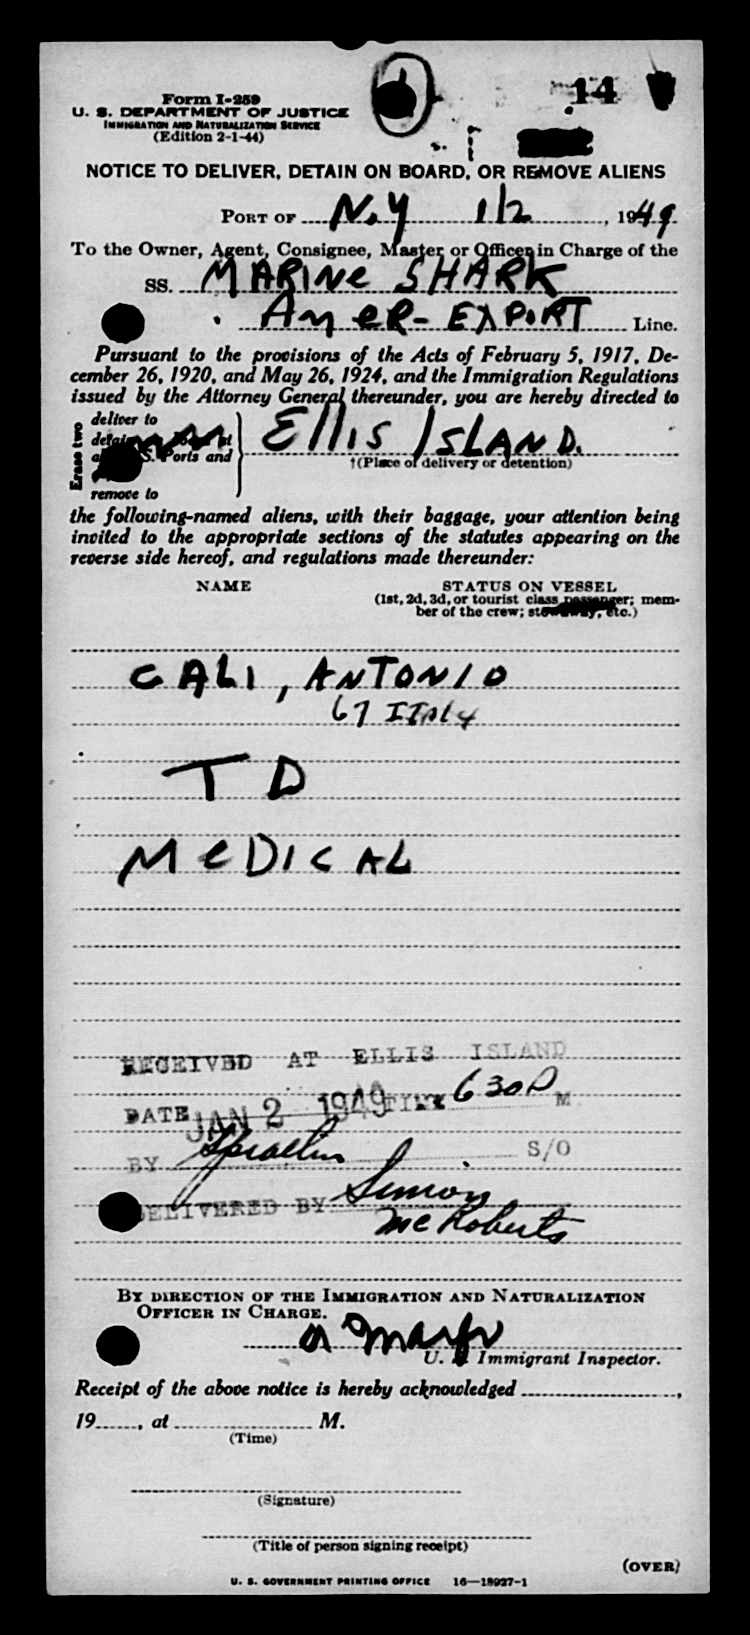 14
Form I-259
U. S. DEPARTMENT OF JUSTICE
IMMIGRATION AND NATURALIZATION SERVICE
(Edition 2-1-44)
NOTICE TO DELIVER, DETAIN ON BOARD, OR REMOVE ALIENS
PORT OF N.Y 1/2, 1949
To the Owner, Agent, Consignee, Master or Officer in Charge of the
SS. MARINE SHARK
AMER-EXPORT Line.
Pursuant to the provisions of the Acts of February 5, 1917, De-
cember 26, 1920, and May 26, 1924, and the Immigration Regulations
issued by the Attorney General thereunder, you are hereby directed to
Erase two
deliver to
S. Ports and
remove to
ELLIS ISLAND.
†(Place of delivery or detention)
the following-named aliens, with their baggage, your attention being
invited to the appropriate sections of the statutes appearing on the
reverse side hereof, and regulations made thereunder:
NAME STATUS ON VESSEL
(1st, 2d, 3d, or tourist class passenger; mem-
ber of the crew; stowaway, etc.)
CALI, ANTONIO
67 ITALY
TD
MEDICAL
RECEIVED AT ELLIS ISLAND
DATE JAN 2 1949 TIME 630P M
BY S/O
DELIVERED BY Simon
McRoberts
BY DIRECTION OF THE IMMIGRATION AND NATURALIZATION
OFFICER IN CHARGE.
U. S. Immigrant Inspector.
Receipt of the above notice is hereby acknowledged ,
19 , at M.
(Time)
(Signature)
(Title of person signing receipt)
(OVER)
U. S. GOVERNMENT PRINTING OFFICE 16—18927-1